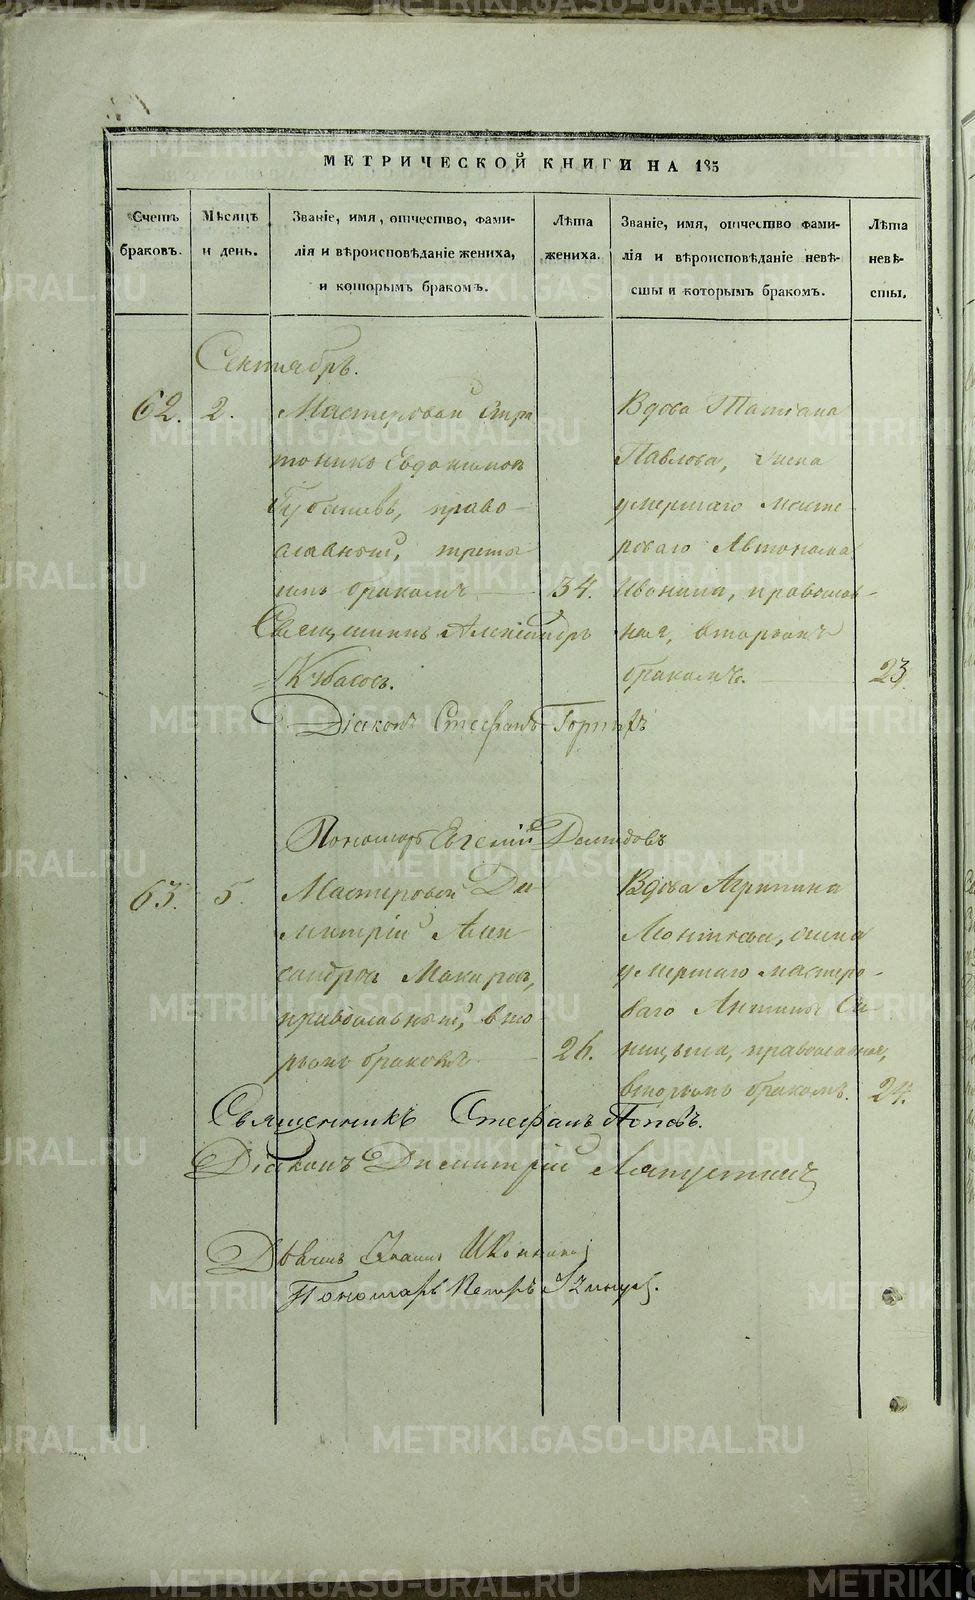 МЕТРИЧЕСКОЙ КНИГИ НА 185
Счетъ браковъ.
Мѣсяцъ и день.
Званіе, имя, отчество, фами-
лія и вѣроисповѣданіе жениха,
и которымъ бракомъ.
Лѣта жениха.
Званіе, имя, отчество фами-
лія и вѣроисповѣданіе невѣ-
сты и которымъ бракомъ.
Лѣта невѣ-
сты.
Сентябрь.
62.
2.
Мастеровой Стра
тоникъ Евдокимовъ
право-
славный, треть
имъ бракомъ
34.
Вдова Татіана
Павлова, жена
умершаго масте-
роваго Автонома
Ивонина, православ-
ная, вторымъ
бракомъ.
23.
Священникъ Александръ
Діаконъ Стефанъ
Пономарь Евгеній Демидовъ
63.
5.
Мастеровой Ди
митрій Алек
сандровъ Макаровъ,
православный, вто
рымъ бракомъ
26.
Вдова Агрипина
Леонтьева, жена
умершаго мастеро-
ваго Антипа Си
ницына, православная,
вторымъ бракомъ.
24.
Священникъ Стефанъ Поповъ.
Діаконъ Димитрій Лапустинъ
Дьячекъ Іоаннъ
Пономарь Петръ
METRIKI.GASO-URAL.RU